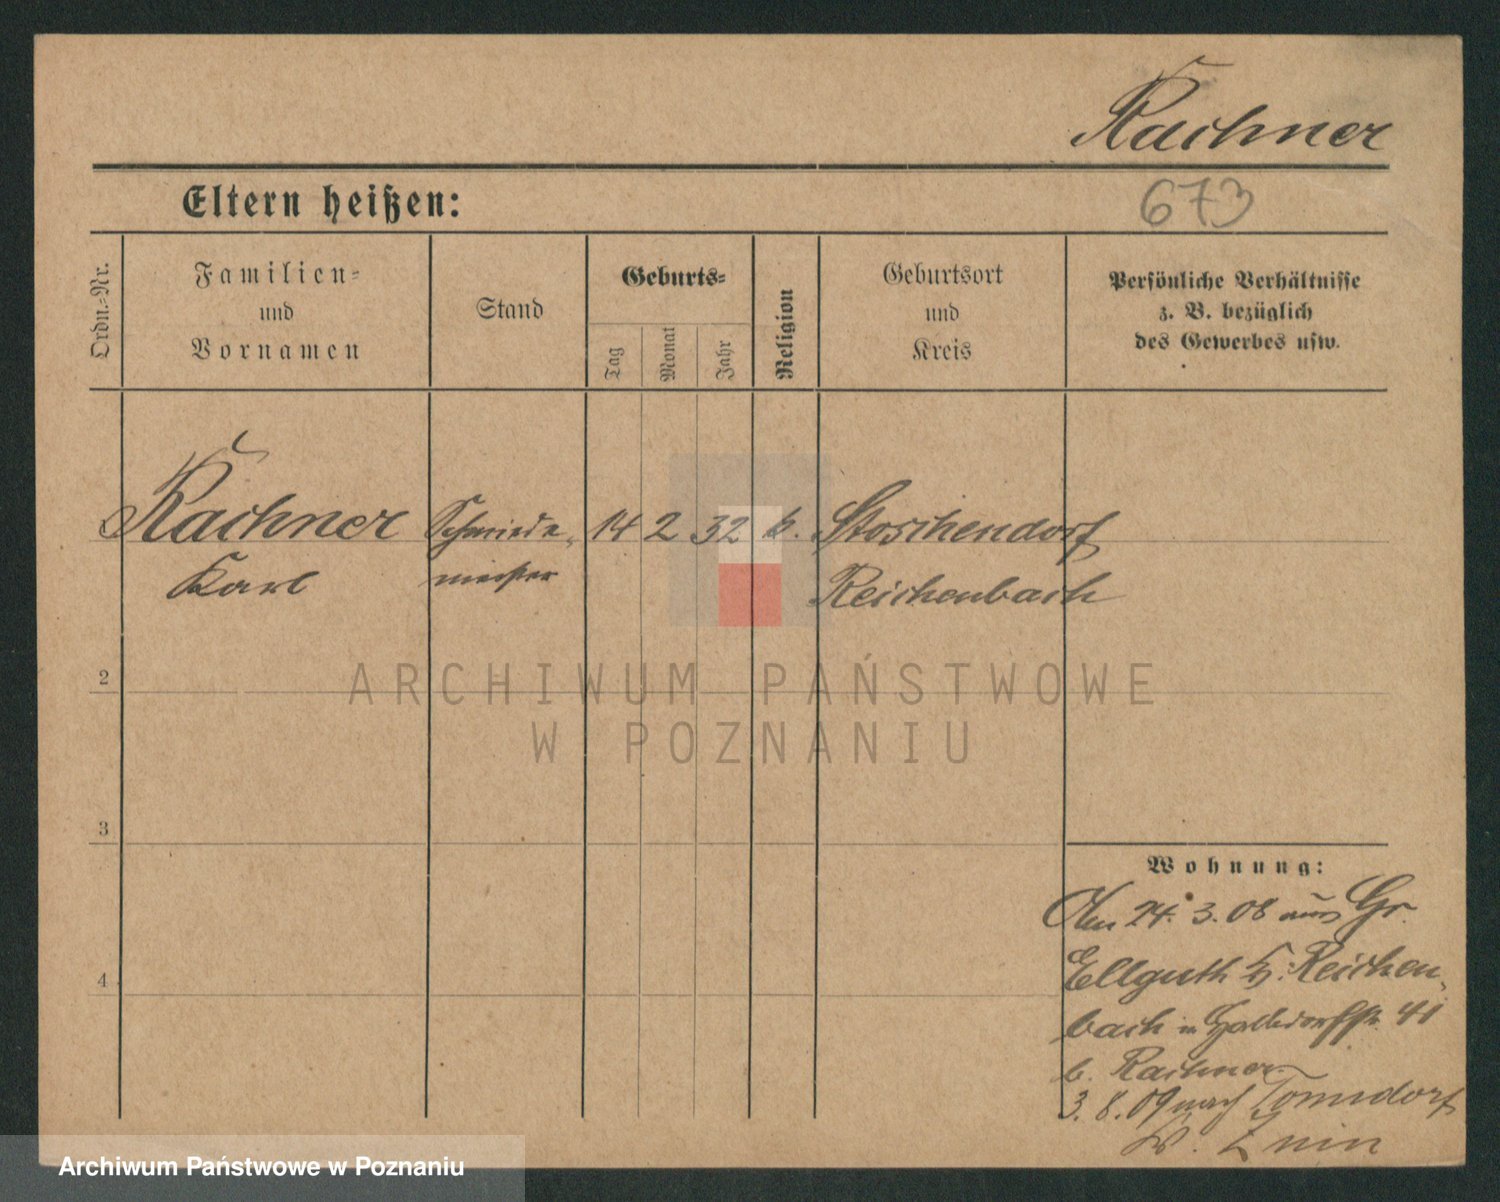 Rachner
673
Eltern heißen:
Ordn.=Nr.
Familien=
und
Vornamen
Stand
Geburts=
Tag
Monat
Jahr
Religion
Geburtsort
und
Kreis
Persönliche Verhältnisse
z. B. bezüglich
des Gewerbes usw.
Rachner Schmiede- 14 2 32 k. Stoschendorf
Karl meister Reichenbach
ARCHIWUM PAŃSTWOWE
W POZNANIU
2
3
4
Wohnung:
24. 3. 08 aus Gr.
Ellguth Kr. Reichen-
bach in Halbdorfstr. 41
b. Rachner
3. 8. 09 nach Tonndorf
Kr. Znin
Archiwum Państwowe w Poznaniu